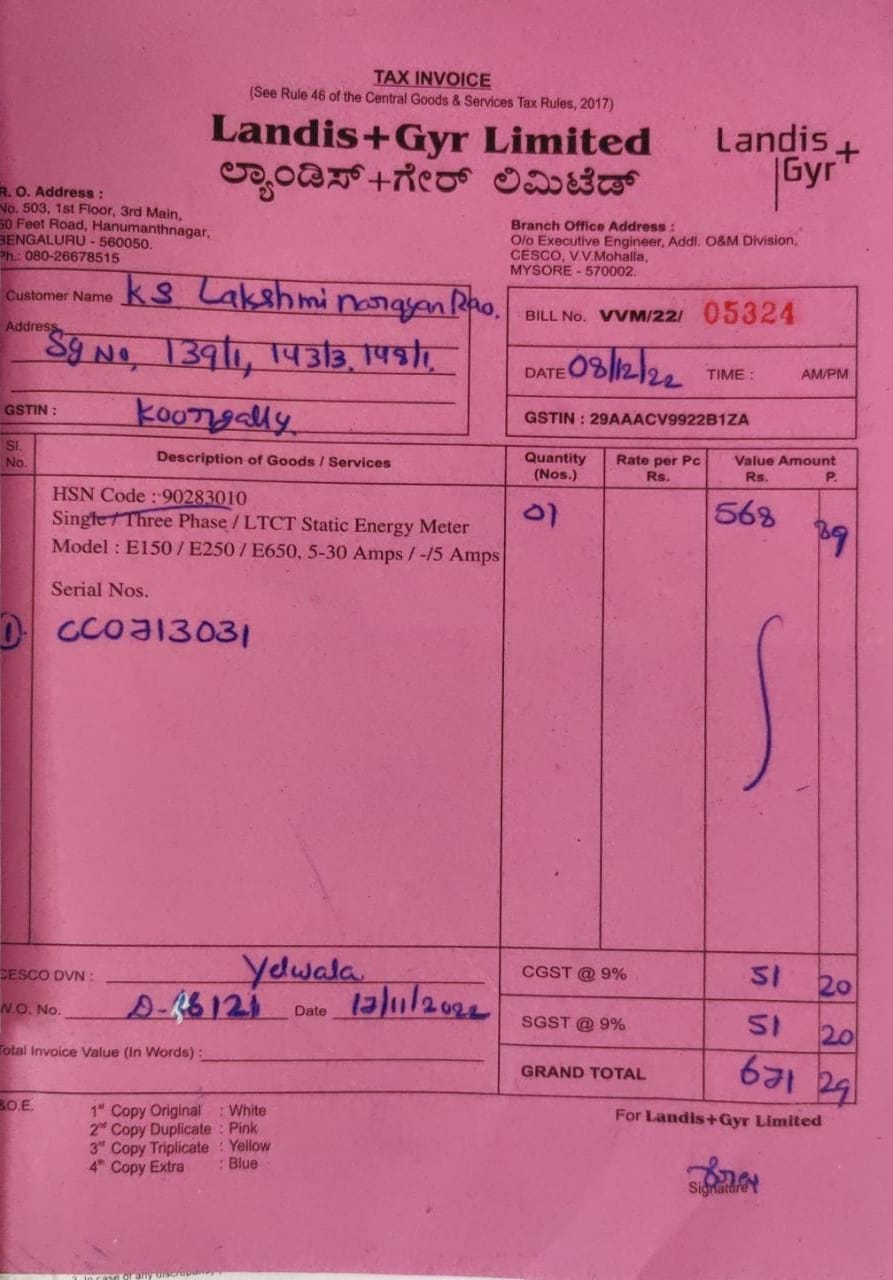 TAX INVOICE
(See Rule 46 of the Central Goods & Services Tax Rules, 2017)
Landis+Gyr Limited
ಲ್ಯಾಂಡಿಸ್+ಗೇರ್ ಲಿಮಿಟೆಡ್
Landis+
Gyr
R. O. Address :
No. 503, 1st Floor, 3rd Main,
60 Feet Road, Hanumanthnagar,
BENGALURU - 560050.
Ph.: 080-26678515
Branch Office Address :
O/o Executive Engineer, Addl. O&M Division,
CESCO, V.V.Mohalla,
MYSORE - 570002.
Customer Name K S Lakshmi narayan Rao.
Address Sy No, 139/1, 143/3, 148/1.
GSTIN : Koorgally
BILL No. VVM/22/ 05324
DATE 08/12/22 TIME : AM/PM
GSTIN : 29AAACV9922B1ZA
Sl. No. Description of Goods / Services Quantity (Nos.) Rate per Pc Rs. Value Amount Rs. P.
HSN Code : 90283010
Single / Three Phase / LTCT Static Energy Meter 01 568 89
Model : E150 / E250 / E650, 5-30 Amps / -/5 Amps
Serial Nos.
1) CC0713031
CESCO DVN : Yelwala
CGST @ 9% 51 20
W.O. No. Date
SGST @ 9% 51 20
Total Invoice Value (In Words) :
GRAND TOTAL 671 29
&O.E.
1st Copy Original : White
2nd Copy Duplicate : Pink
3rd Copy Triplicate : Yellow
4th Copy Extra : Blue
For Landis+Gyr Limited
Signature